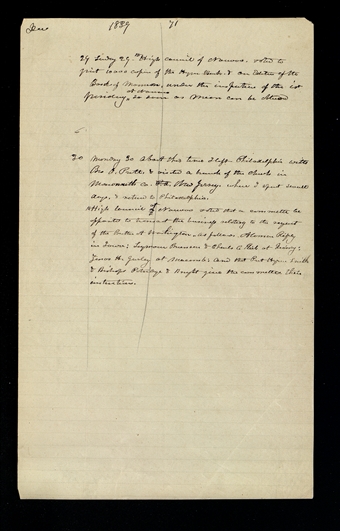 Dec 1839 71
29 Sunday 29. High Council of Nauvoo voted to
print 10000 copies of the Hymn book, & an Edition of the
Book of Mormon, under the inspection of the 1st
Presidency, at Nauvoo so soon as means can be obtained
30 Monday 30 About this time I left Philadelphia with
Bro O. Pratt & visited a branch of the church in
Monmouth Co. New Jersey, where I spent several
days, & returned to Philadelphia.
High Council of Nauvoo voted that a committee be
appointed to transact the business relating to the
of the Brethren at Washington, as follows Alanson Ripley
in Iowa; Seymour Brunson & Charles C. Rich at Quincy;
Zenos H. Gurley at Macomb; and that Prest Hyrum Smith
& Bishops Partridge & Knight give the committee their
instructions.